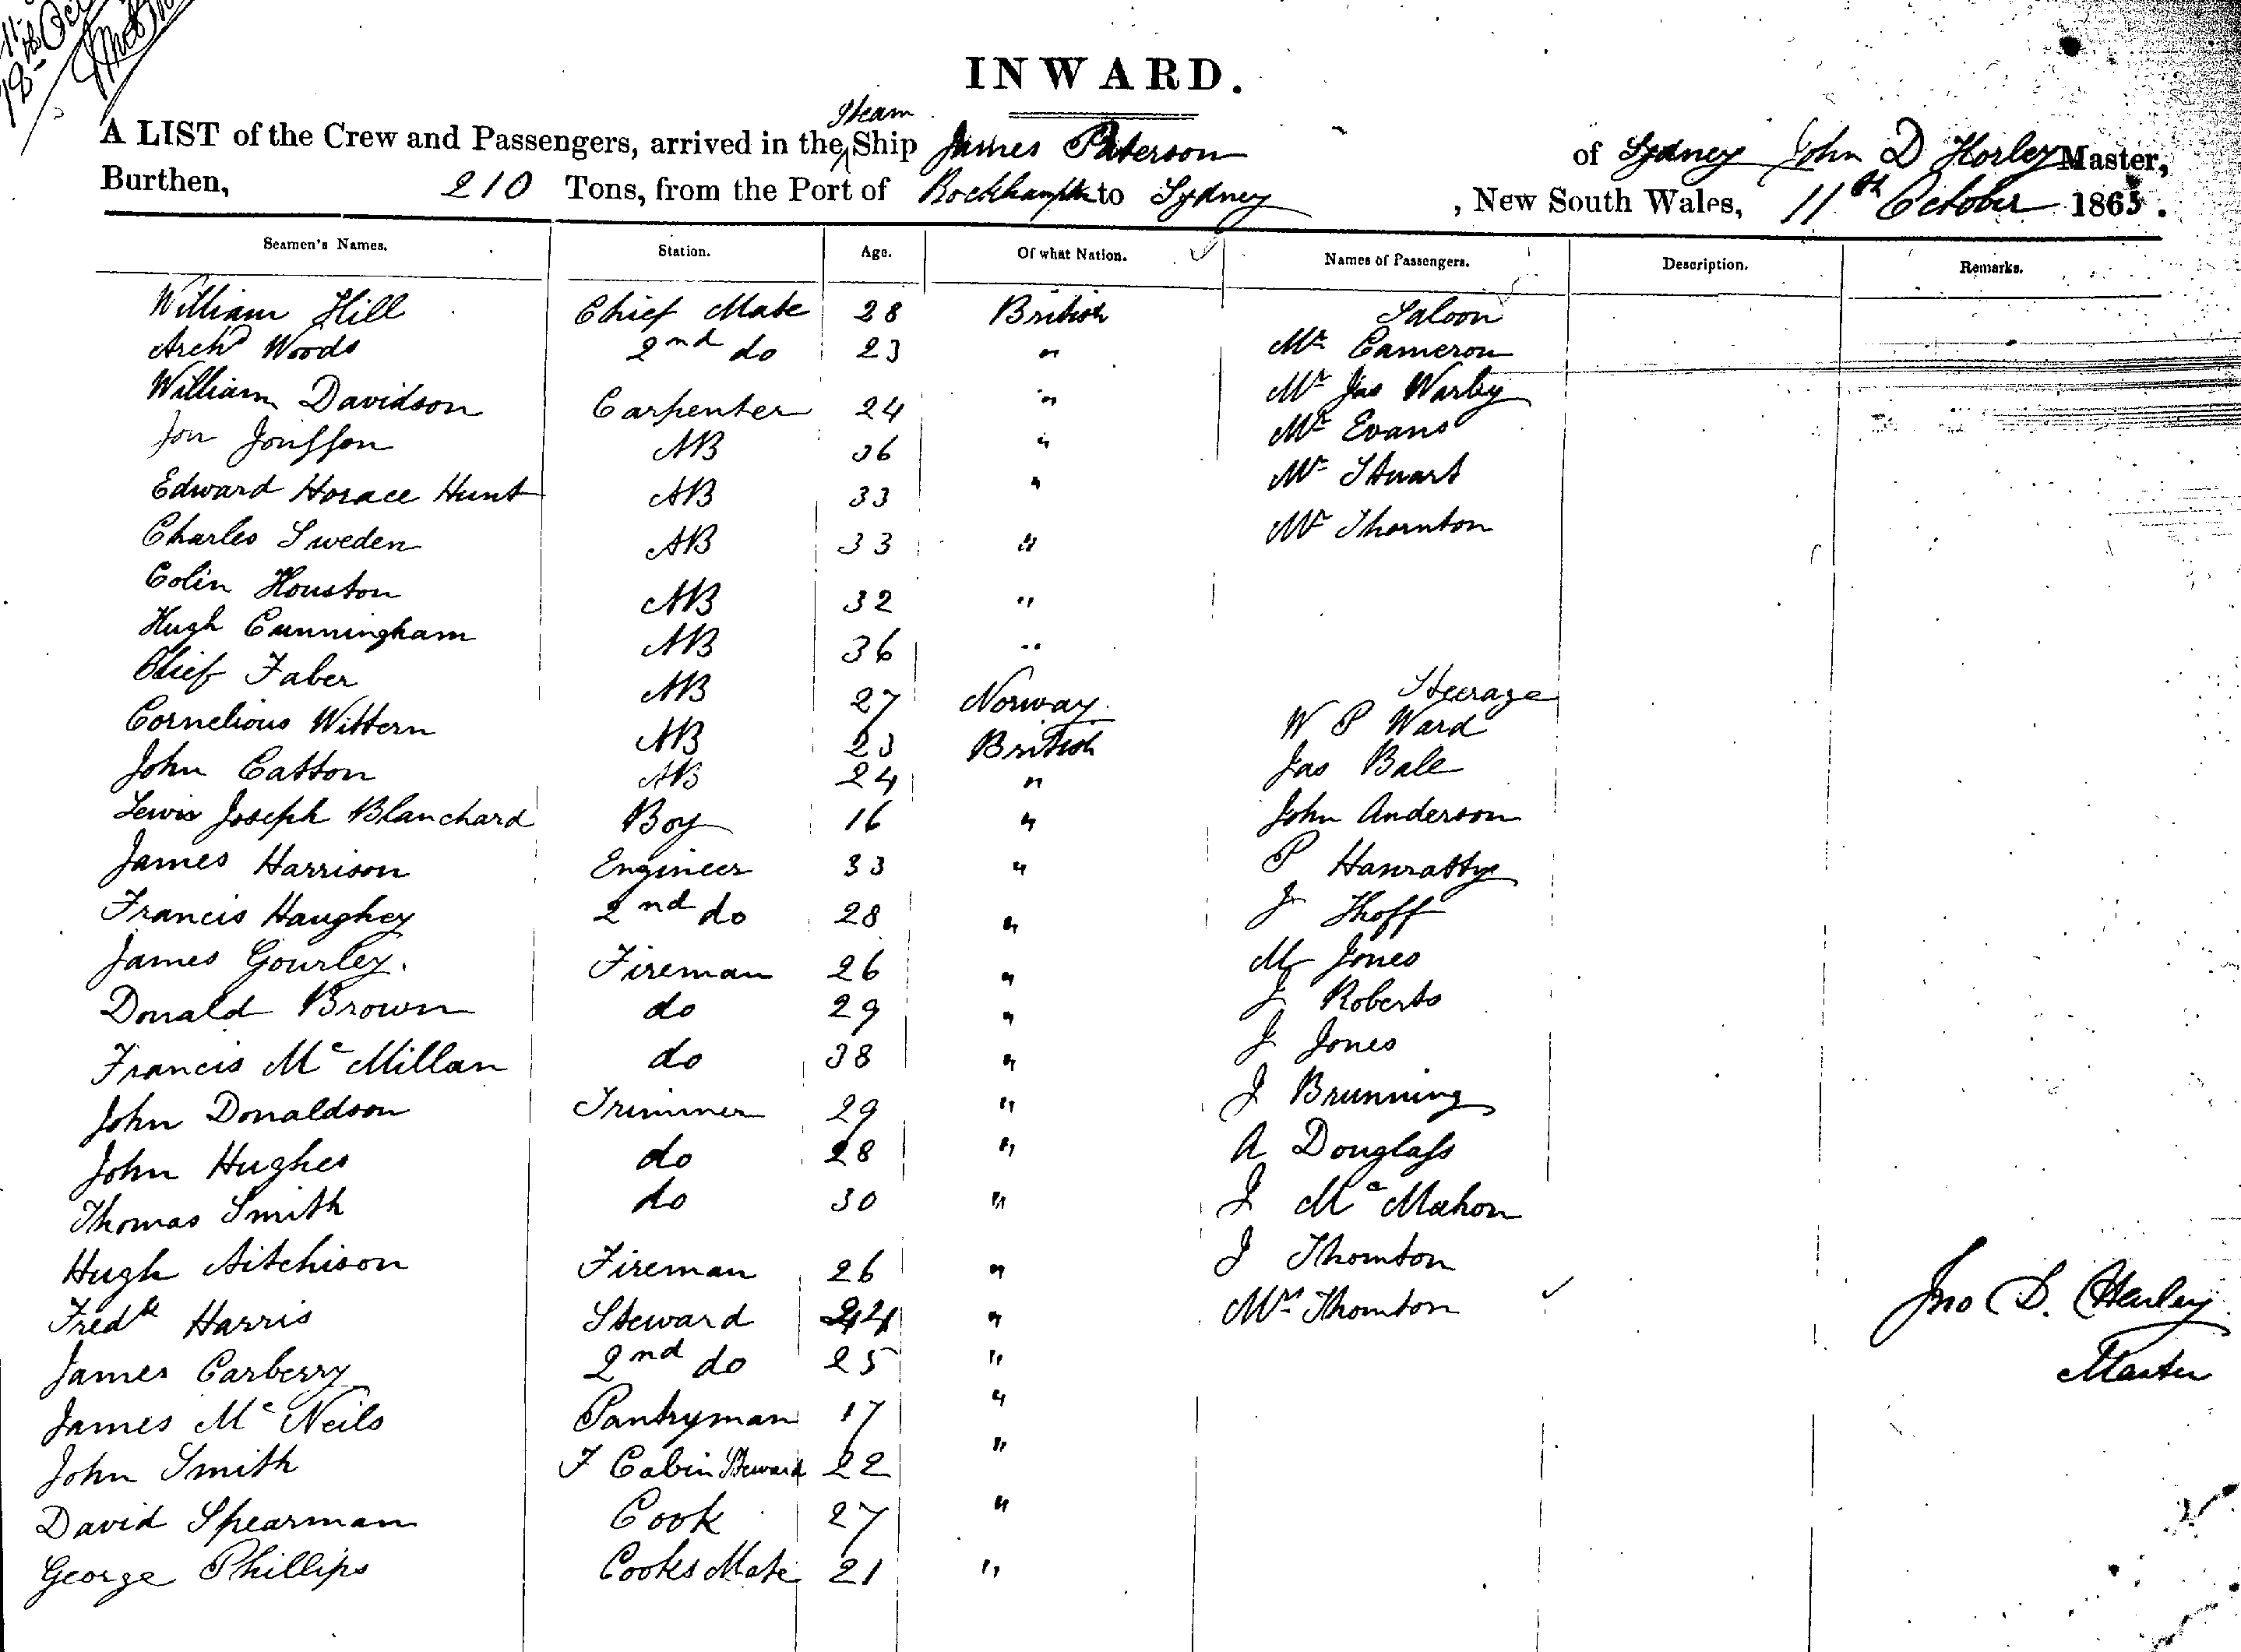 INWARD.
A LIST of the Crew and Passengers, arrived in the Steam Ship James Paterson of Sydney John D Horley Master,
Burthen, 210 Tons, from the Port of Rockhampton to Sydney, New South Wales, 11th October 1865.
Seamen's Names. Station. Age. Of what Nation. Names of Passengers. Description. Remarks.
William Hill Chief Mate 28 British Saloon
Archd Woods 2nd do 23 " Mr Cameron
William Davidson Carpenter 24 " Mr Jas Warby
Jon Jonsson AB 36 " Mr Evans
Edward Horace Hunt AB 33 " Mr Stuart
Charles Sweden AB 33 " Mr Thornton
Colin Houston AB 32 "
Hugh Cunningham AB 36 "
Faber AB 27 Norway Steerage
Cornelious Wittern AB 23 British W P Ward
John Catton AB 24 " Jas Bale
Lewis Joseph Blanchard Boy 16 " John Anderson
James Harrison Engineer 33 " P Hanratty
Francis Haughey 2nd do 28 " J Thoff
James Gourley. Fireman 26 " M Jones
Donald Brown do 29 " J Roberts
Francis McMillan do 38 " J Jones
John Donaldson Trimmer 29 " J Brunning
John Hughes do 28 " A Douglass
Thomas Smith do 30 " J McMahon
Hugh Aitchison Fireman 26 " J Thornton
Fredk Harris Steward 24 " Mrs Thornton
Jno D. Henley
James Carberry 2nd do 25 "
Master
James McNeils Pantryman 17 "
John Smith F Cabin Steward 22 "
David Spearman Cook 27 "
George Phillips Cooks Mate 21 "